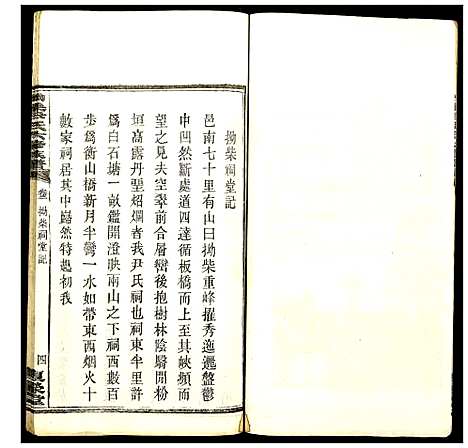 拗柴祠堂記
邑南七十里有山曰拗柴重峰擢秀迤邐盤鬱
中凹然斷處道四達循板橋而上其峽頫而
望之見夫空翠前合層巒後抱樹林陰翳開粉
垣高露丹堊炤爛者我尹氏祠也祠東半里許
爲白石塘一畝鑑開澄映南山之下祠西數百
步爲衡山橋新月半彎一水如帶東西烟火十
數家祠居其中巋然特起初我
尹氏六修族譜
卷 拗柴祠堂記
四